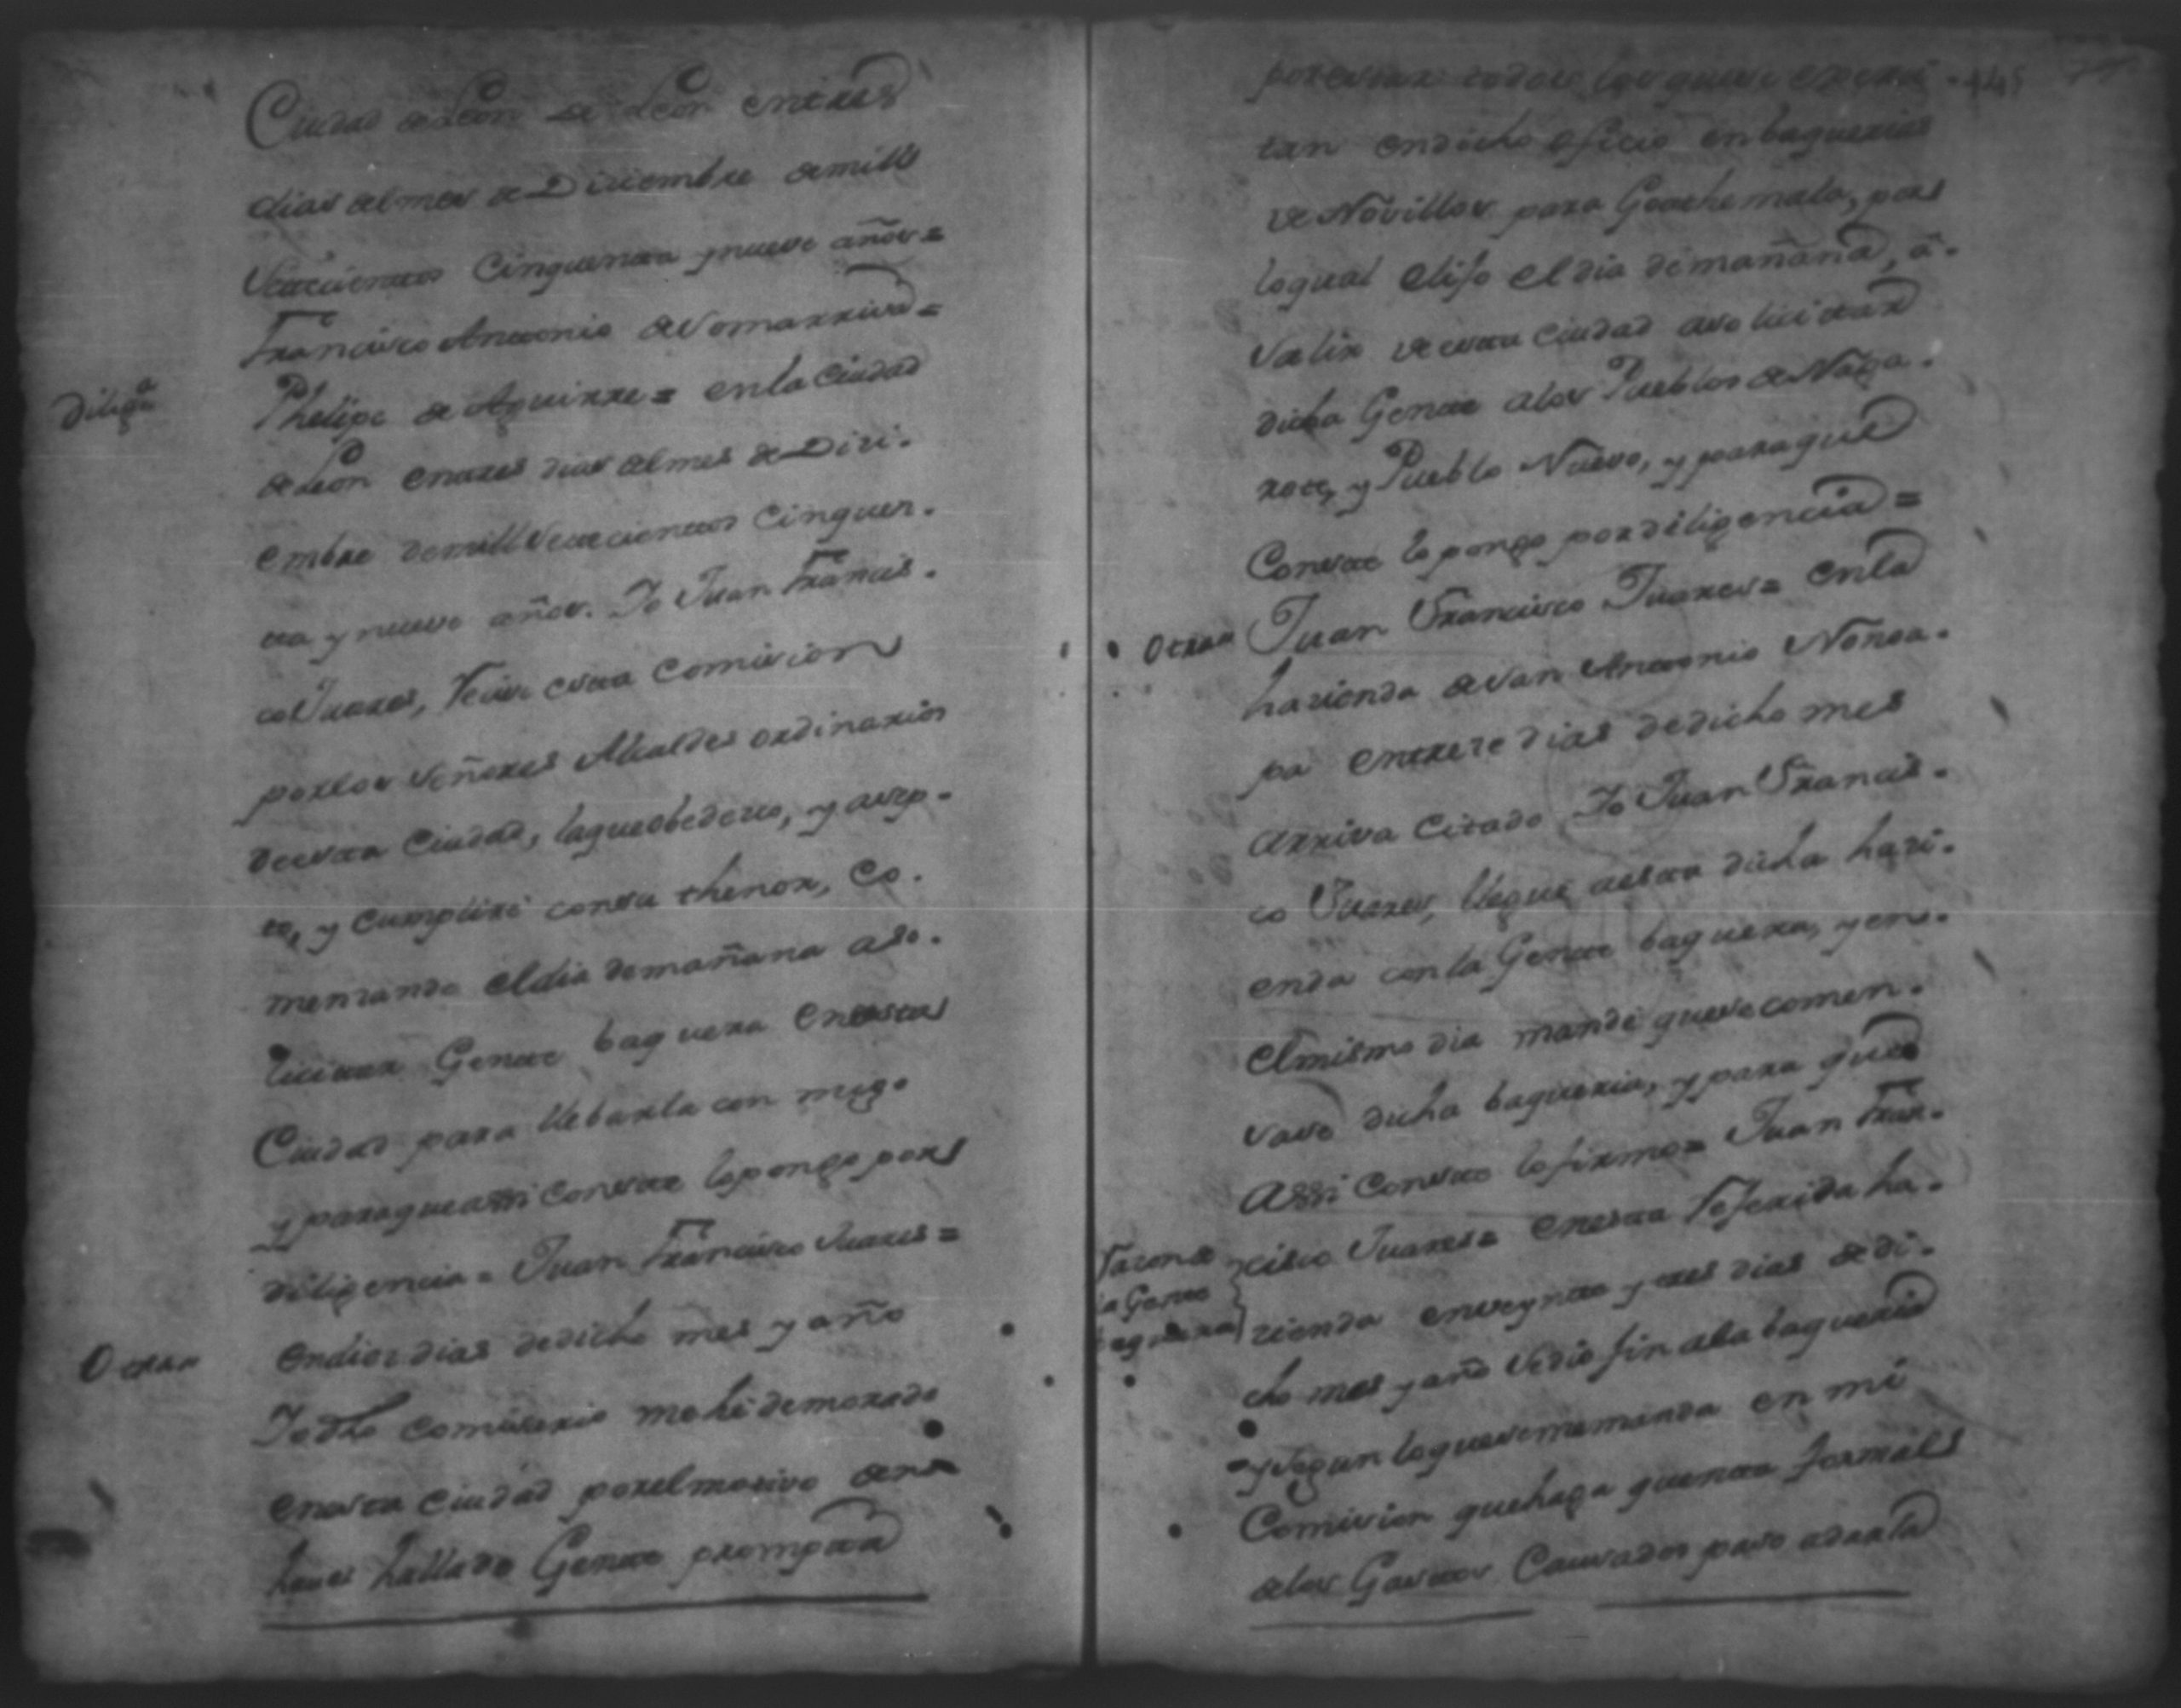 Ciudad de Leon de Leon entres
dias del mes de Diciembre demill
Setecientos Cinquenta y nueve años=
Francisco Antonio de Somarriva=
Diligª Phelipe de Aguirre= enla Ciudad
de Leon entres dias del mes de Dizi-
embre demill Setecientos Cinquen-
ta y nueve años. Yo Juan Francis-
co Juares, Recivi esta Comission
porlos Señores Alcaldes ordinarios
de esta Ciudad, laqueobedesco, y asep-
to, y cumplire consu thenor, Co-
menzando eldia demañana aso-
licitar Gente baquera enesta
Ciudad para llebarla con migo
y paraqueassi Conste lopongo por
diligencia= Juan Francisco Juares=
Otra endiez dias dedicho mes y año
Yo dho Comissario mehé demorado
enesta Ciudad porelmotivo deno
haver hallado Gente prompta
porestar todos los quese exerci- 145
tan endicho oficio enbaquerias
de Novillos para Goathemala, por
loqual eliso eldia demañana, á-
Salir de esta Ciudad asolicitar
dicha Gente alos Pueblos de Naga-
rote, y Pueblo Nuevo, y paraque
Conste lo pongo pordiligencia=
Otra Juan Francisco Juares= enla
hazienda de San Antonio Nonoa-
pa entreze dias dedicho mes
arriva Citado Yo Juan Francis-
co Juares, llegue aesta dicha hazi-
enda conla Gente baquera, yen-
elmismo dia mande quese comen-
sase dicha baqueria, y para que
Assi Conste lofirmo= Juan Fran-
Razon de la Gente baquera cisco Juares= enesta Referida ha-
zienda enveynte y tres dias de di-
cho mes y año sedio fin ala baqueria
y segun loquesememanda en mi
Comission quehaga quenta formal
delos Gastos Causados paso adarla